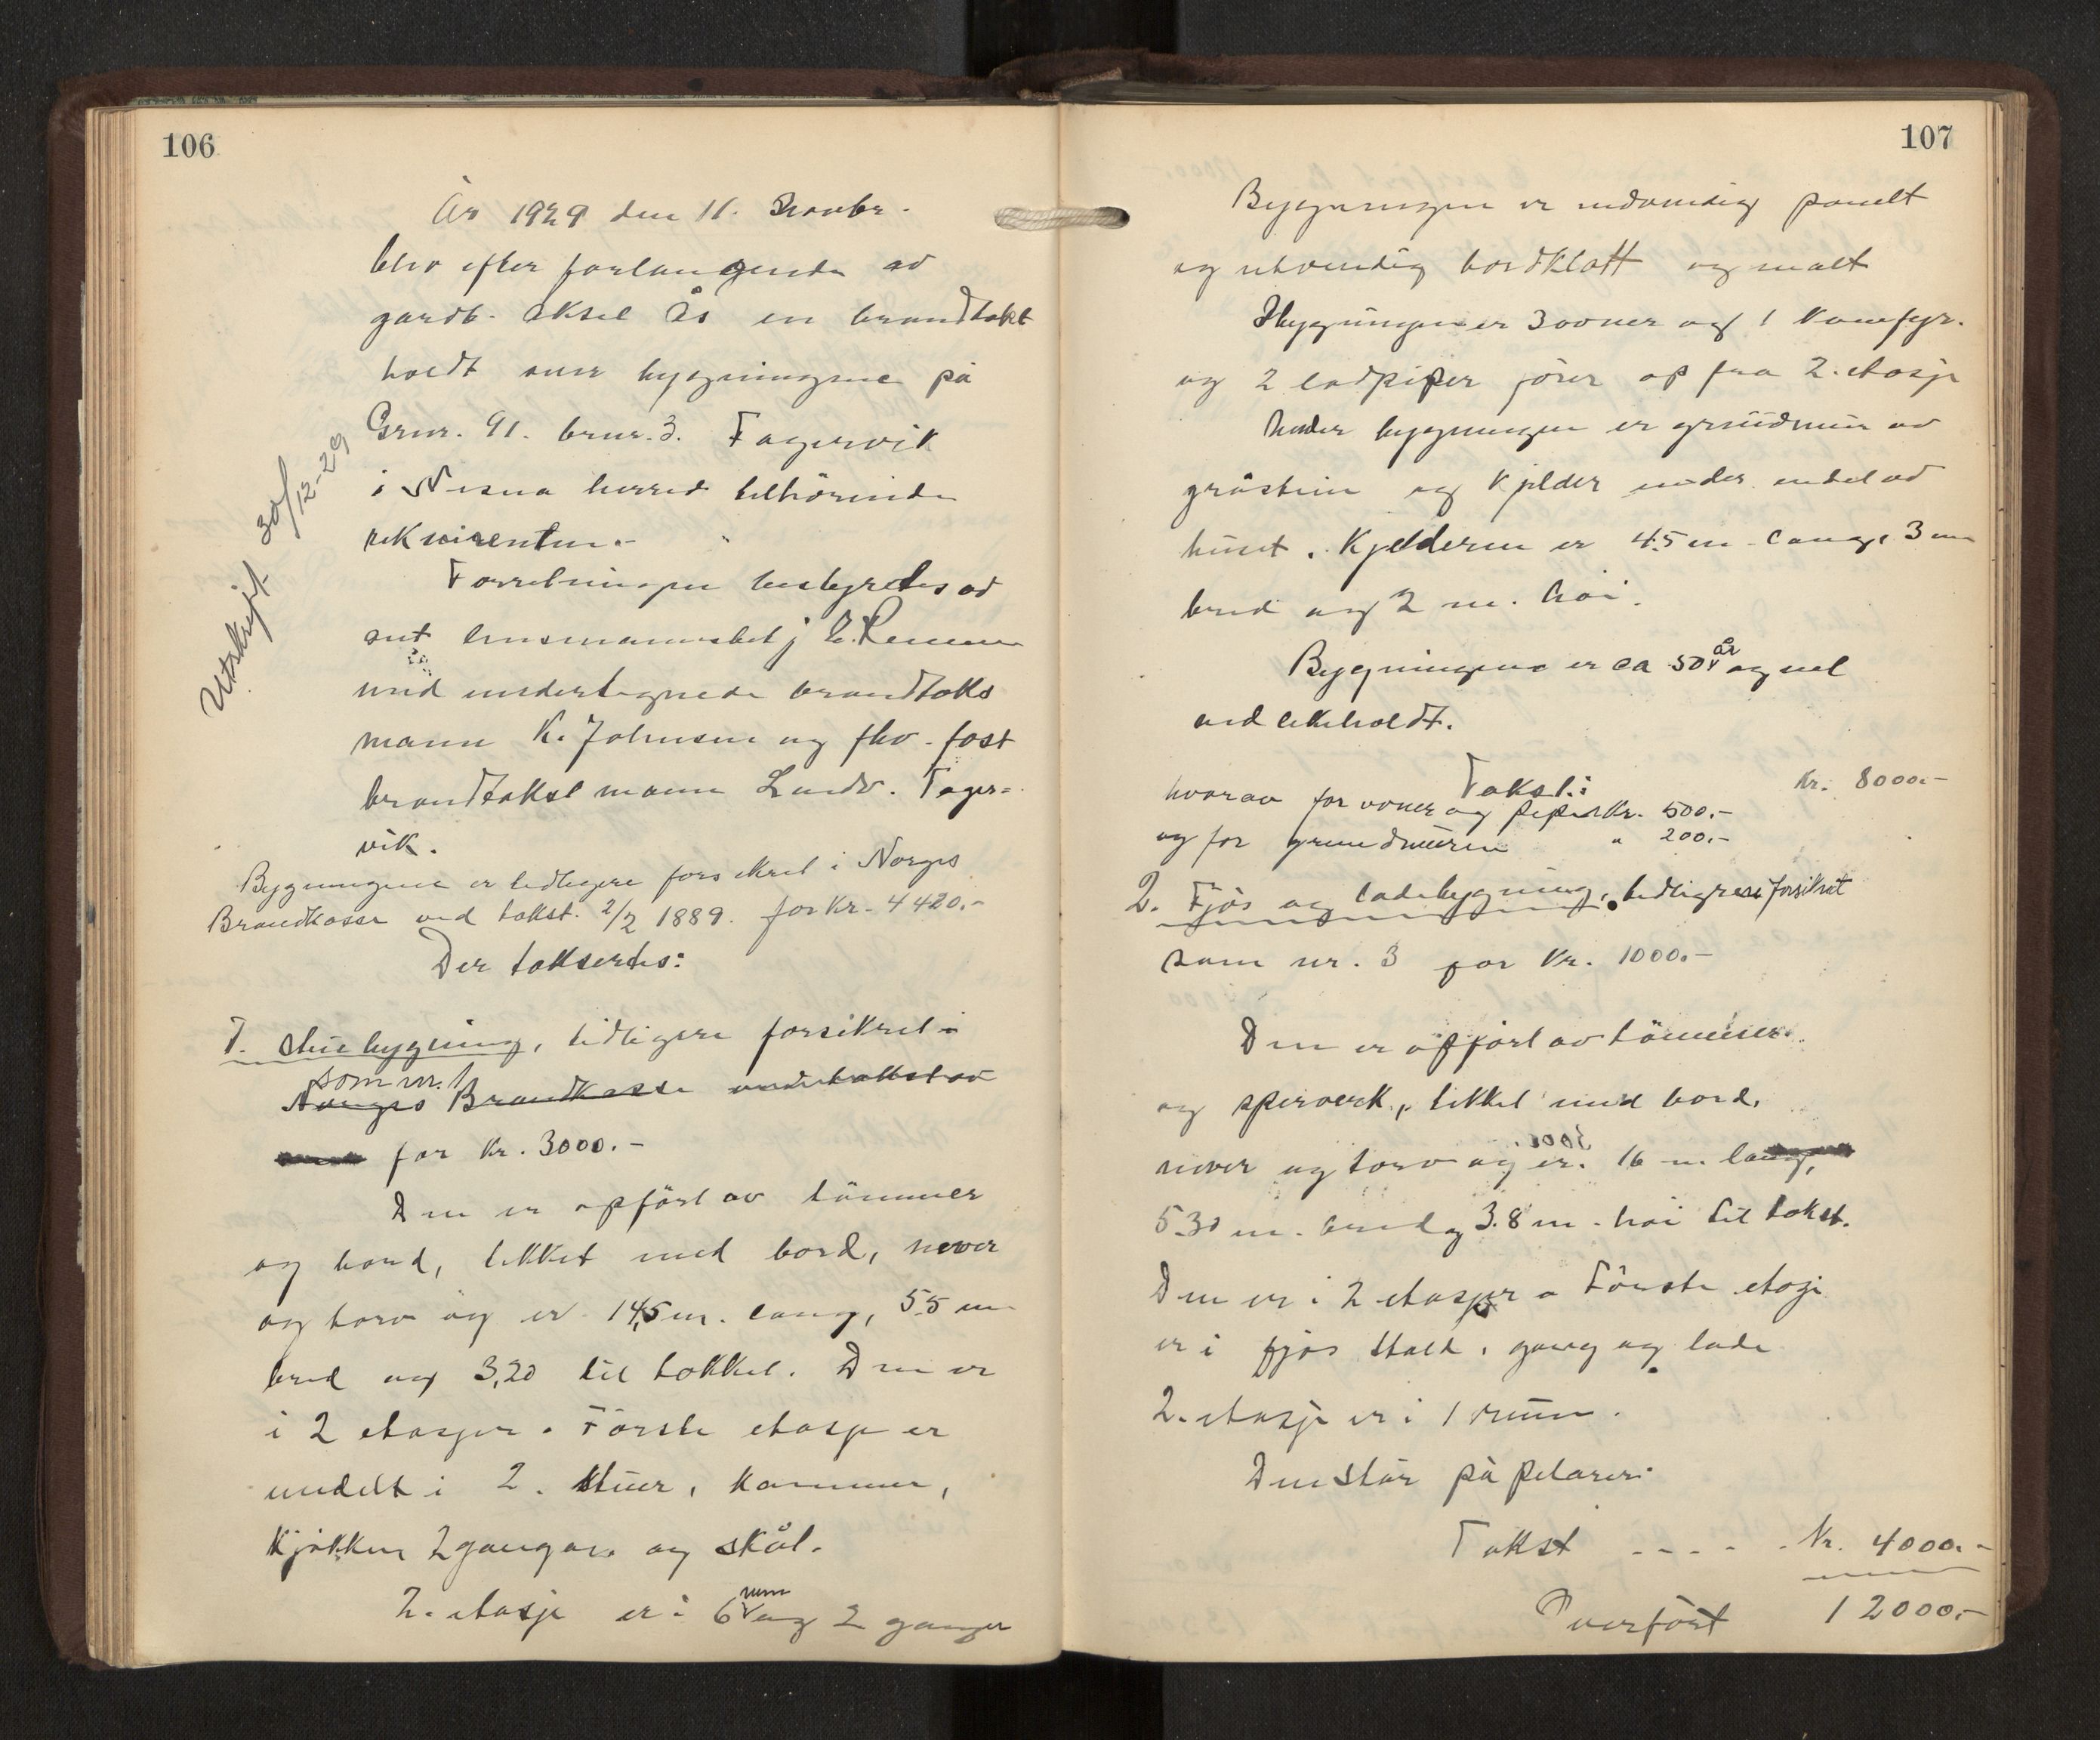 106
År 1929 den 11. Novbr.
blev efter forlangende av
gardb. Aksel Ås en brandtakst
holdt over bygningene på
Grnr. 91. brnr. 3. Fagervik
i Nesna herred tilhörende
rekvirenten.-
Forretningen bestyredes av
ved undertegnede brandtaks
mann K. Johnsen og fhv. fast
brandtakst mann Ludv. Fager=
vik.
Utskrift 30/12-29
Bygningene er tidligere forsikret i Norges
Brandkasse ved takst. 2/2 1889. for Kr. 4420.-
Der taksertes:
1. Stuebygning, tidligere forsikret i
som nr. 1
Norges Brandkasse
for Kr. 3000.-
Den er opfört av tömmer
og bord, tekket med bord, never
og torv og er 14,5 m. lang, 5.5 m
bred og 3,20 til takket. Den er
i 2 etasjer. Förste etasje er
inndelt i 2. stuer, kammer,
kjökken 2 ganger og skål.
2. etasje er i 6 rum og 2 ganger
107
Bygningen er indvendig panelt
og utvendig bordklått og malt
I bygningen er 3 ovner og 1 komfyr.
og 2 ladpiper förer op fra 2. etasje
Under bygningen er grundmur av
gråstein og kjelder under endel av
huset. Kjelderen er 4.5 m. lang, 3 m
bred og 2 m. höi.
Bygningene er ca 50 år og vel
vedlikeholdt.
Takst: Kr. 8000.-
hvorav for ovner og piper Kr. 500.-
og for grundmuren " 200.-
2. Fjös og ladebygning, tidligere forsikret
som nr. 3 for Kr. 1000.-
Den er opfört av tömmer
og sperverk, tekket med bord,
never og torv og er 16 m lang,
5.30 m. bred og 3.8 m. höi til takst.
Den er i 2 etasjer. Förste etasje
er i fjös stall, gang og lade
2. etasje er i 1 rum.
Den står på pelarer.
Takst - - - - - Kr. 4000.-
Overfört 12000.-